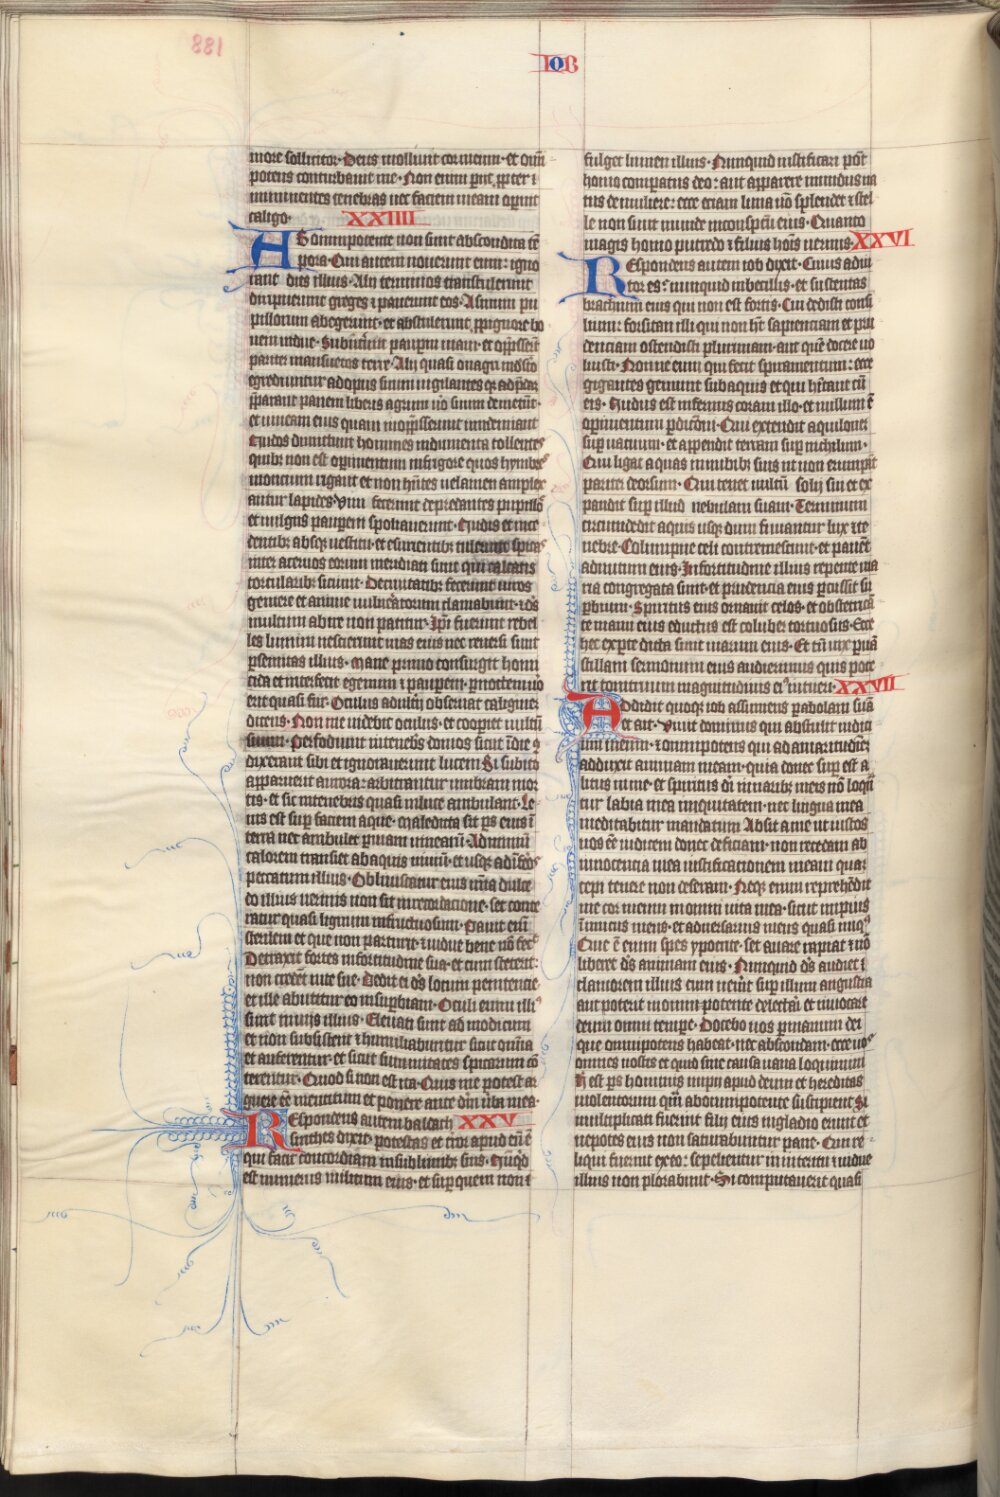 IOB
more sollicitor· Deus molliuit cor meum· et om̄i
potens conturbauit me· Non enim perii ꝓpter i
minentes tenebras nec faciem meam operuit
caligo· XXIIII
AB omnipotente non sunt abscondita tē
pora· Qui autem nouerunt eum: igno
rant dies illius· Alij terminos transtulerunt
diripuerunt greges ⁊ pauerunt eos· Asinum pu
pillorum abegerunt· et abstulerunt ꝓ pignore bo
uem uidue· Subūterūt pauperū uiam· et oppresserūt
pariter mansuetos terre· Alij quasi onagri ī deserto
egrediuntur ad opus suum uigilantes qȝ ad predam
p̄parant panem liberis agrum nō suum demetūt·
et uineam eius quam ui oppresserunt uindemiant
Nudos dimittunt homines indumenta tollentes
quibȝ non est operimentum in frigore quos hymbres
montium rigant et non hn̄tes uelamen amplex
antur lapides· Vim fecerunt depredantes pupillos
et uulgus pauperū spoliauerunt· Nudis et ince
dentibȝ absqȝ uestitu· et esurientibȝ tulerunt spicas
inter aceruos eorum meridiati sunt qui calcatis
torcularibȝ siciunt· De ciuitatibȝ fecerunt uiros
gemere et anime uulneratorum clamabunt· ⁊ ds̄
inultum abire non patitur· Ip̄i fuerunt rebel
les lumini nescierunt uias eius nec reuersi sunt
per semitas illius· Mane primo consurgit homi
cida et interfecit egenum ⁊ pauperem· per noctem uō
erit quasi fur· Oculus adulteri obseruat caliginē
dicens· Non me uidebit oculus· et cooperiet uultū
suum· Perfodiunt in tenebris domos sicut ī die ꝯ
dixerant sibi et ignorauerunt lucem Si subito
apparuerit aurora: arbitrantur umbram mor
tis· et sic in tenebris quasi in luce ambulant· Le
uis est super faciem aque· maledicta sit pars eius ī
terra nec ambulet per uiam uinearū· Ad nimiū
calorem transiet ab aquis niuiū· et usqȝ ad īferos
peccatum illius· Obliuiscatur eius mīa dulce
do illius uermis non sit in recordacione· set conte
ratur quasi lignum infructuosum· Pauit enī
sterilem et que non parturit· ⁊ uidue bene nō fecit
Detraxit fortes in fortitudine sua· et cum steterit:
non credet uite sue· Dedit ei ds̄ locum penitencie·
et ille abutitur eo in superbiam· Oculi enim illiꝰ
sunt in uijs illius· Eleuati sunt ad modicum
et non subsistent ⁊ humiliabuntur sicut omnia
et auferentur· et sicut summitates spicarum cō
terentur· Quod si non est ita· Quis me potest ar
guere esse mentitum et ponere ante deum uerba mea·
Respondens autem baldath XXV
suites dixit· potestas et terror apud eū ē
qui facit concordiam in sublimibȝ suis· Nūqd
est numerus militum eius· et super quem non ⁊
fulget lumen illius· Nunquid iustificari potest
homo comparatus deo: aut apparere mundus na
tus de muliere: ecce eciam luna nō splendet ⁊ stel
le non sunt munde in conspectu eius· Quanto
magis homo putredo ⁊ filius hoīs uermis· XXVI
Respondens autem iob dixit· Cuius adiu
tor es: nunquid imbecillis· et sustentas
brachium eius qui non est fortis· Cui dedisti consi
lium: forsitan illi qui non ht̄ sapienciam et pru
denciam ostendisti plurimam· aut quē docere uo
luisti· Nonne eum qui fecit spiramentum: ecce
gigantes gemunt sub aquis et qui hītant cū
eis· Nudus est infernus coram illo· et nullum ē
operimentum perdicioni· Qui extendit aquilonē
super uacuum· et appendit terram super nichilum·
Qui ligat aquas in nubibȝ suis ut non erumpāt
pariter deorsum· Qui tenet uultū solij sui et ex
pandit super illud nebulam suam· Terminum
circumdedit aquis usqȝ dum finiantur lux ⁊ te
nebre· Columpne celi contremescunt· et pauēt
ad nutum eius· In fortitudine illius repente ma
ria congregata sunt· et prudencia eius percussit su
perbum· Spiritus eius ornauit celos· et obstetricā
te manu eius eductus est coluber tortuosus· Ecce
hec ex parte dicta sunt uiarum eius· Et cū uix paruā
stillam sermonum eius audierimus quis pote
rit tonitruum magnitudinis eiꝰ intueri· XXVII
Addidit quoqȝ iob assumens parabolam suā
et ait· Viuit dominus qui abstulit iudici
um meum· ⁊ omnipotens qui ad amaritudinē
adduxit animam meam· quia donec superest a
litus in me· et spiritus dī in naribȝ meis nō loquē
tur labia mea iniquitatem· nec lingua mea
meditabitur mandatum Absit a me ut iustos
uos ēē iudicem donec deficiam· non recedam ab
innocencia mea iustificacionem meam quam
cepi tenere non deseram· Neqȝ enim reprehēdit
me cor meum in omni uita mea· sicut impius
īimicus meus· et aduersarius meus quasi iniqꝰ
Que ē enim spes ypocrite· set auare rapiat ⁊ nō
liberet ds̄ animam eius· Nunquid ds̄ audiet ⁊
clamorem illius cum uenerit super illum angustia
aut poterit in omnipotente delectari et inuocare
deum omni tempore· Docebo uos per manum dei
que omnipotens habeat· nec abscondam· ecce uos
omnes nostis et quid sine causa uana loquimini
Hec est pars hominis impij apud deum et hereditas
uiolentorum quā ab omnipotente suscipient Si
multiplicati fuerint filij eius in gladio erunt et
nepotes eius non saturabuntur pane· Qui re
liqui fuerint ex eo: sepelientur in interitu ⁊ uidue
illius non plorabunt· Si comportauerit quasi